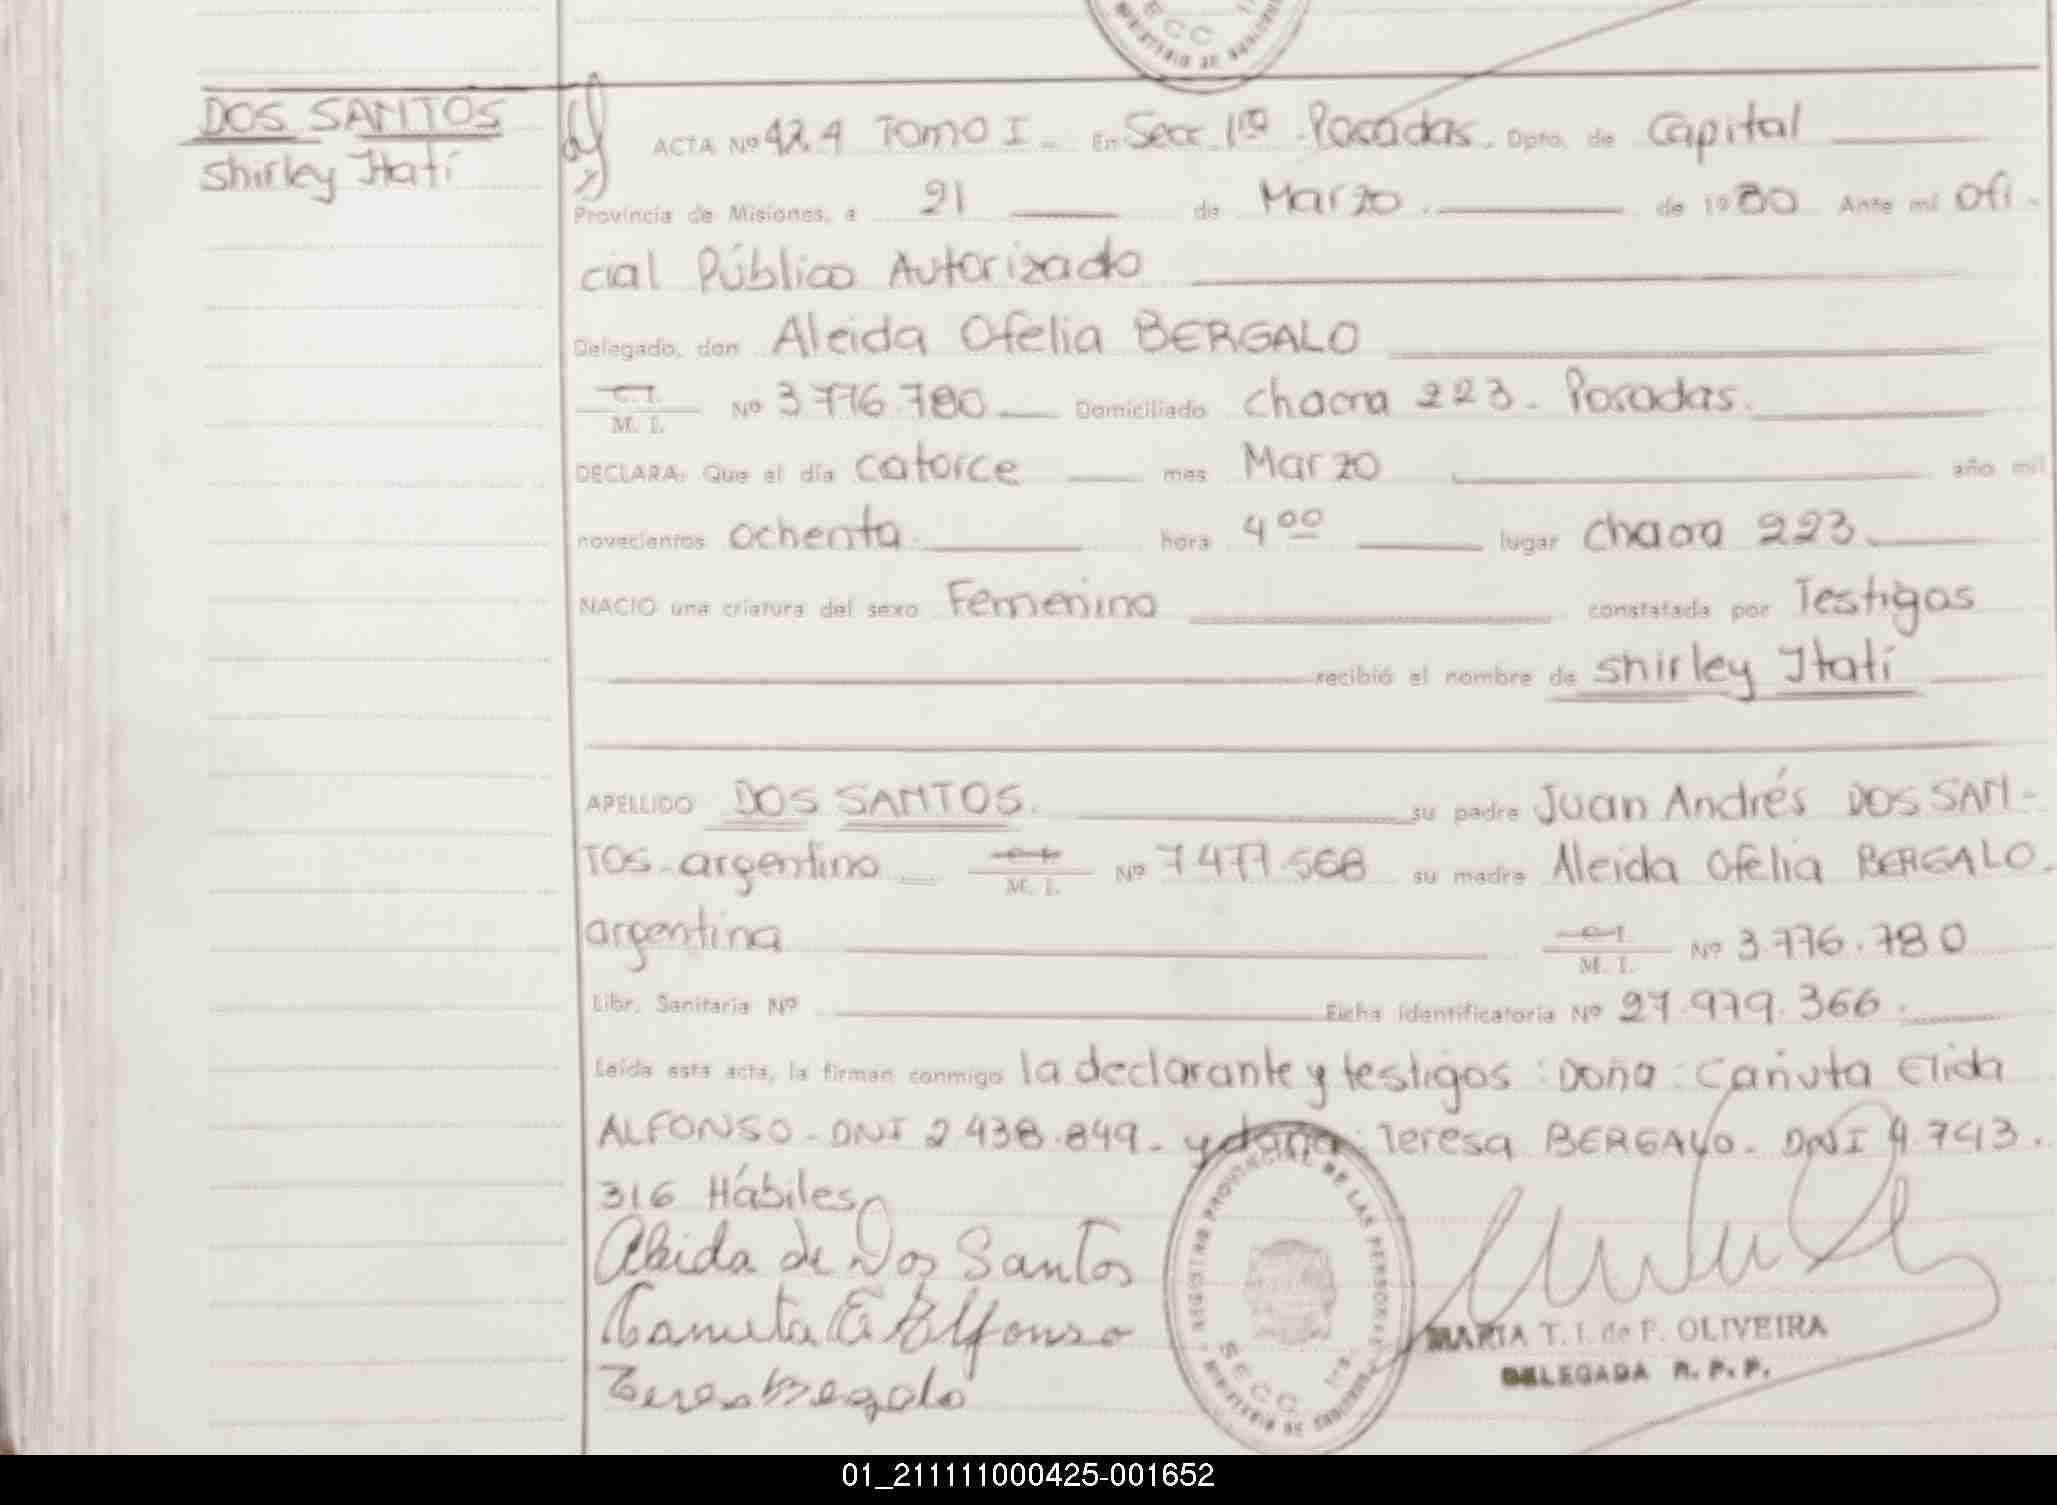 SECC 1ra.
MINISTERIO DE GOBIERNO
DOS SANTOS
Shirley Itatí
ACTA Nº 424 Tomo I - En Secc. 1ra Posadas. Dpto. de Capital
Provincia de Misiones, a 21 de Marzo. de 1980 Ante mi Ofi-
cial Público Autorizado
Delegado, don Aleida Ofelia BERGALO
C.I. M. I. Nº 3.776.780 Domiciliado Chacra 223 - Posadas.
DECLARA: Que el día catorce mes Marzo año mil
novecientos ochenta. hora 4 00 lugar Chacra 223.
NACIO una criatura del sexo Femenino constatada por Testigos
recibió el nombre de Shirley Itatí
APELLIDO DOS SANTOS. su padre Juan Andrés DOS SAN-
TOS - argentino C.I. M. I. Nº 7.477.568 su madre Aleida Ofelia BERGALO -
argentina C.I. M. I. Nº 3.776.780
Libr. Sanitaria Nº Ficha identificatoria Nº 27.979.366.
Leída esta acta, la firman conmigo la declarante y testigos: Doña: Cañuta Elida
ALFONSO - DNI 2.438.849 - y doña: Teresa BERGALO - DNI 4.743.
316 Hábiles
Aleida de Dos Santos
Canuta E Alfonso
Teresa Bergalo
REGISTRO PROVINCIAL DE LAS PERSONAS
SECC. 1ra.
MINISTERIO DE GOBIERNO
MARIA T. I. de P. OLIVEIRA
DELEGADA R. P. P.
01_211111000425-001652